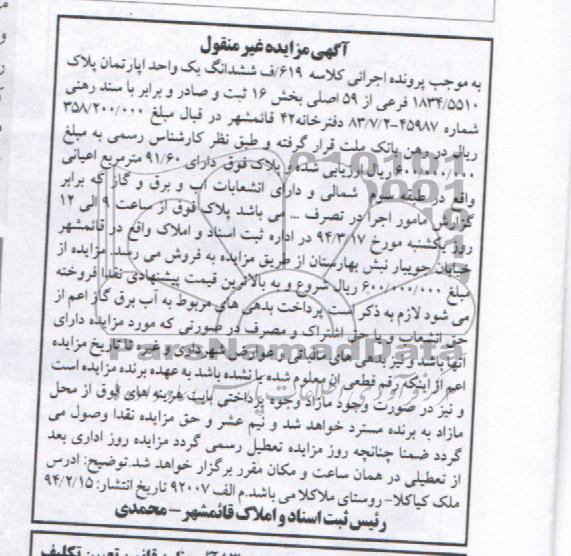 آگهی مزایده غیر منقول
به موجب پرونده اجرائی کلاسه ۶۱۹/ف ششدانگ یک واحد اپارتمان پلاک
۱۸۳۴/۵۵۱۰ فرعی از ۵۹ اصلی بخش ۱۶ ثبت و صادر و برابر با سند رهنی
شماره ۴۵۹۸۷-۸۳/۷/۲ دفترخانه ۴۲ قائمشهر در قبال مبلغ ۳۵۸/۲۰۰/۰۰۰
ریال در رهن بانک ملت قرار گرفته و طبق نظر کارشناس رسمی به مبلغ
۶۰۰/۰۰۰/۰۰۰ ریال ارزیابی شده و پلاک فوق دارای ۹۱/۶۰ مترمربع اعیانی
واقع در طبقه سوم شمالی و دارای انشعابات اب و برق و گاز که برابر
گزارش مامور اجرا در تصرف ... می باشد پلاک فوق از ساعت ۹ الی ۱۲
روز یکشنبه مورخ ۹۴/۳/۱۷ در اداره ثبت اسناد و املاک واقع در قائمشهر
خیابان جویبار نبش بهارستان از طریق مزایده به فروش می رسد. مزایده از
مبلغ ۶۰۰/۰۰۰/۰۰۰ ریال شروع و به بالاترین قیمت پیشنهادی نقدا فروخته
می شود لازم به ذکر است پرداخت بدهی های مربوط به آب برق گاز اعم از
حق انشعاب و یا حق اشتراک و مصرف در صورتی که مورد مزایده دارای
آنها باشد و نیز بدهی های مالیاتی و عوارض شهرداری و غیره تا تاریخ مزایده
اعم از اینکه رقم قطعی ان معلوم شده یا نشده باشد به عهده برنده مزایده است
و نیز در صورت وجود مازاد وجوه پرداختی بابت هزینه های فوق از محل
مازاد به برنده مسترد خواهد شد و نیم عشر و حق مزایده نقدا وصول می
گردد ضمنا چنانچه روز مزایده تعطیل رسمی گردد مزایده روز اداری بعد
از تعطیلی در همان ساعت و مکان مقرر برگزار خواهد شد.توضیح: ادرس
ملک کیاکلا- روستای ملاکلا می باشد.م الف ۹۲۰۰۷ تاریخ انتشار: ۹۴/۲/۱۵
رئیس ثبت اسناد و املاک قائمشهر - محمدی
ParsNamadData